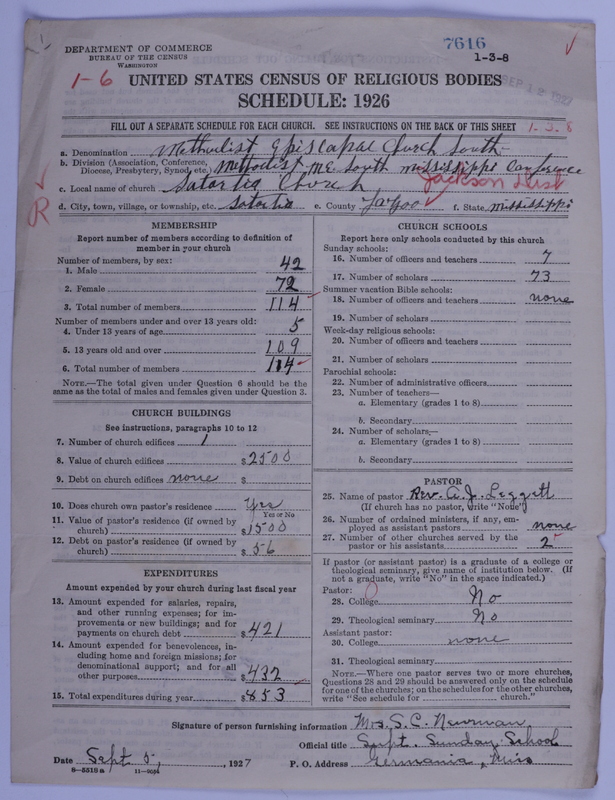 7616
DEPARTMENT OF COMMERCE
BUREAU OF THE CENSUS
WASHINGTON
1-3-8
1-6
SEP 12 1927
UNITED STATES CENSUS OF RELIGIOUS BODIES
SCHEDULE: 1926
FILL OUT A SEPARATE SCHEDULE FOR EACH CHURCH. SEE INSTRUCTIONS ON THE BACK OF THIS SHEET
1-3.8
a. Denomination Methodist Episcapal Church South
b. Division (Association, Conference, Diocese, Presbytery, Synod, etc.) Methodist M.E. South Mississippi Conference
Jackson Dist
c. Local name of church Satartia Church
d. City, town, village, or township, etc. Satartia e. County Yazoo f. State Mississippi
R
MEMBERSHIP
Report number of members according to definition of
member in your church
Number of members, by sex:
1. Male 42
2. Female 72
3. Total number of members 114
Number of members under and over 13 years old:
4. Under 13 years of age 5
5. 13 years old and over 109
6. Total number of members 114
NOTE.—The total given under Question 6 should be the
same as the total of males and females given under Question 3.
CHURCH BUILDINGS
See instructions, paragraphs 10 to 12
7. Number of church edifices 1
8. Value of church edifices $2500
9. Debt on church edifices none $
10. Does church own pastor's residence Yes
Yes or No
11. Value of pastor's residence (if owned by
church) $1500
12. Debt on pastor's residence (if owned by
church) $56
EXPENDITURES
Amount expended by your church during last fiscal year
13. Amount expended for salaries, repairs,
and other running expenses; for im-
provements or new buildings; and for
payments on church debt $421
14. Amount expended for benevolences, in-
cluding home and foreign missions; for
denominational support; and for all
other purposes $432
15. Total expenditures during year $853
CHURCH SCHOOLS
Report here only schools conducted by this church
Sunday schools:
16. Number of officers and teachers 7
17. Number of scholars 73
Summer vacation Bible schools:
18. Number of officers and teachers none
19. Number of scholars
Week-day religious schools:
20. Number of officers and teachers
21. Number of scholars
Parochial schools:
22. Number of administrative officers
23. Number of teachers—
a. Elementary (grades 1 to 8)
b. Secondary
24. Number of scholars—
a. Elementary (grades 1 to 8)
b. Secondary
PASTOR
25. Name of pastor Rev. A. J. Leggett
(If church has no pastor, write "None")
26. Number of ordained ministers, if any, em-
ployed as assistant pastors none
27. Number of other churches served by the
pastor or his assistants 2
If pastor (or assistant pastor) is a graduate of a college or
theological seminary, give name of institution below. (If
not a graduate, write "No" in the space indicated.)
Pastor:
28. College No
29. Theological seminary No
Assistant pastor:
30. College none
31. Theological seminary
NOTE.—Where one pastor serves two or more churches,
Questions 28 and 29 should be answered only on the schedule
for one of the churches; on the schedules for the other churches,
write "See schedule for church."
Signature of person furnishing information Mrs. S. C. Newman
Official title Supt. Sunday School
Date Sept 5, 1927 P. O. Address Germania, Miss
8-5518a 11-9054